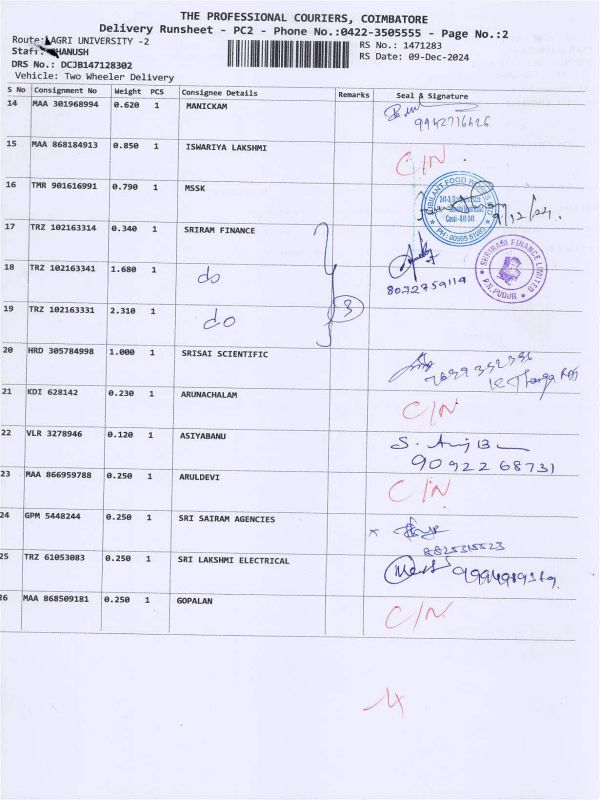 THE PROFESSIONAL COURIERS, COIMBATORE
Delivery Runsheet - PC2 - Phone No.:0422-3505555 - Page No.:2
Route: AGRI UNIVERSITY -2
RS No.: 1471283
Staff: DHANUSH
RS Date: 09-Dec-2024
DRS No.: DCJB147128302
Vehicle: Two Wheeler Delivery
S No Consignment No Weight PCS Consignee Details Remarks Seal & Signature
14 MAA 301968994 0.620 1 MANICKAM
9942716426
15 MAA 868184913 0.850 1 ISWARIYA LAKSHMI C/N
16 TMR 901616991 0.790 1 MSSK 9/12/24.
17 TRZ 102163314 0.340 1 SRIRAM FINANCE
SHRIRAM FINANCE LIMITED
P.N. PUDUR
18 TRZ 102163341 1.680 1 do
8072759114
19 TRZ 102163331 2.310 1 do 3
20 HRD 305784998 1.000 1 SRISAI SCIENTIFIC
21 KDI 628142 0.230 1 ARUNACHALAM C/N
22 VLR 3278946 0.120 1 ASIYABANU
90922 68731
23 MAA 866959788 0.250 1 ARULDEVI C/N
24 GPM 5448244 0.250 1 SRI SAIRAM AGENCIES
8825315523
25 TRZ 61053083 0.250 1 SRI LAKSHMI ELECTRICAL
26 MAA 868509181 0.250 1 GOPALAN C/N